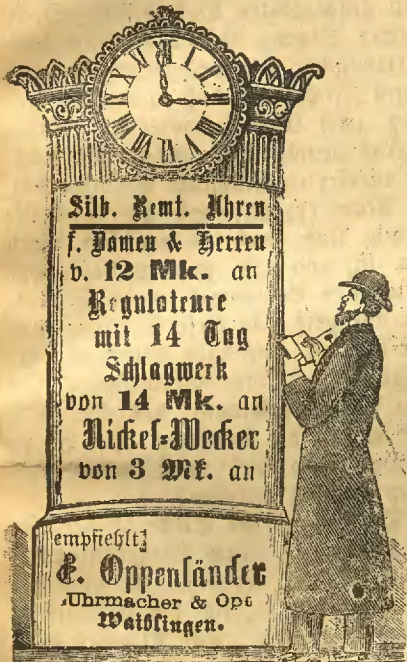 Silb. Remt. Uhren
f. Damen & Herren
v. 12 Mk. an
Regulateure
mit 14 Tag
Schlagwerk
von 14 Mk. an
Nickel=Wecker
von 3 Mk. an
empfiehlt
E. Oppenländer
Uhrmacher & Opt
Waiblingen.